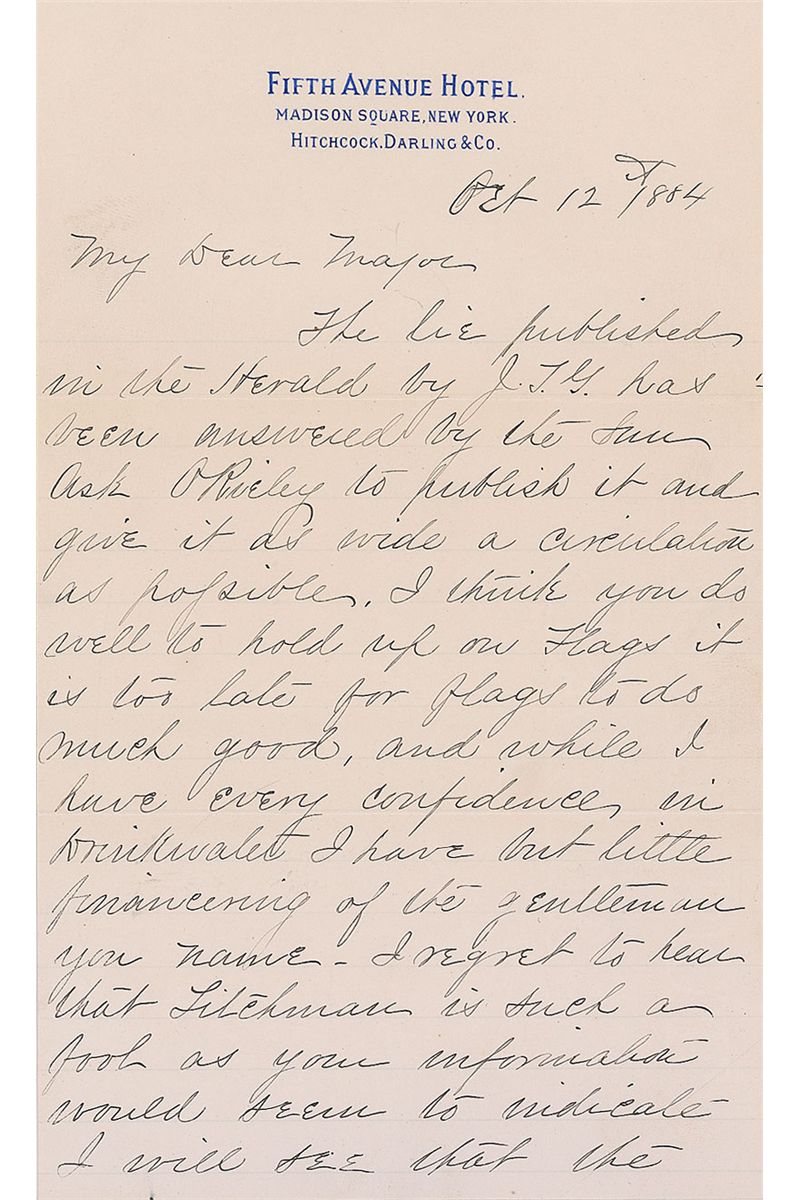 FIFTH AVENUE HOTEL.
MADISON SQUARE, NEW YORK.
HITCHCOCK, DARLING & CO.
Oct 12th/1884
My Dear Major
The lie published
in the Herald by J.T.G. has
been answered by the Sun
Ask ORieley to publish it and
give it as wide a circulation
as possible. I think you do
well to hold up on Flags it
is too late for flags to do
much good, and while I
have every confidence in
Drinkwater I have but little
financering of the gentleman
you name - I regret to hear
that Litchman is such a
fool as your information
would seem to indicate
I will see that the